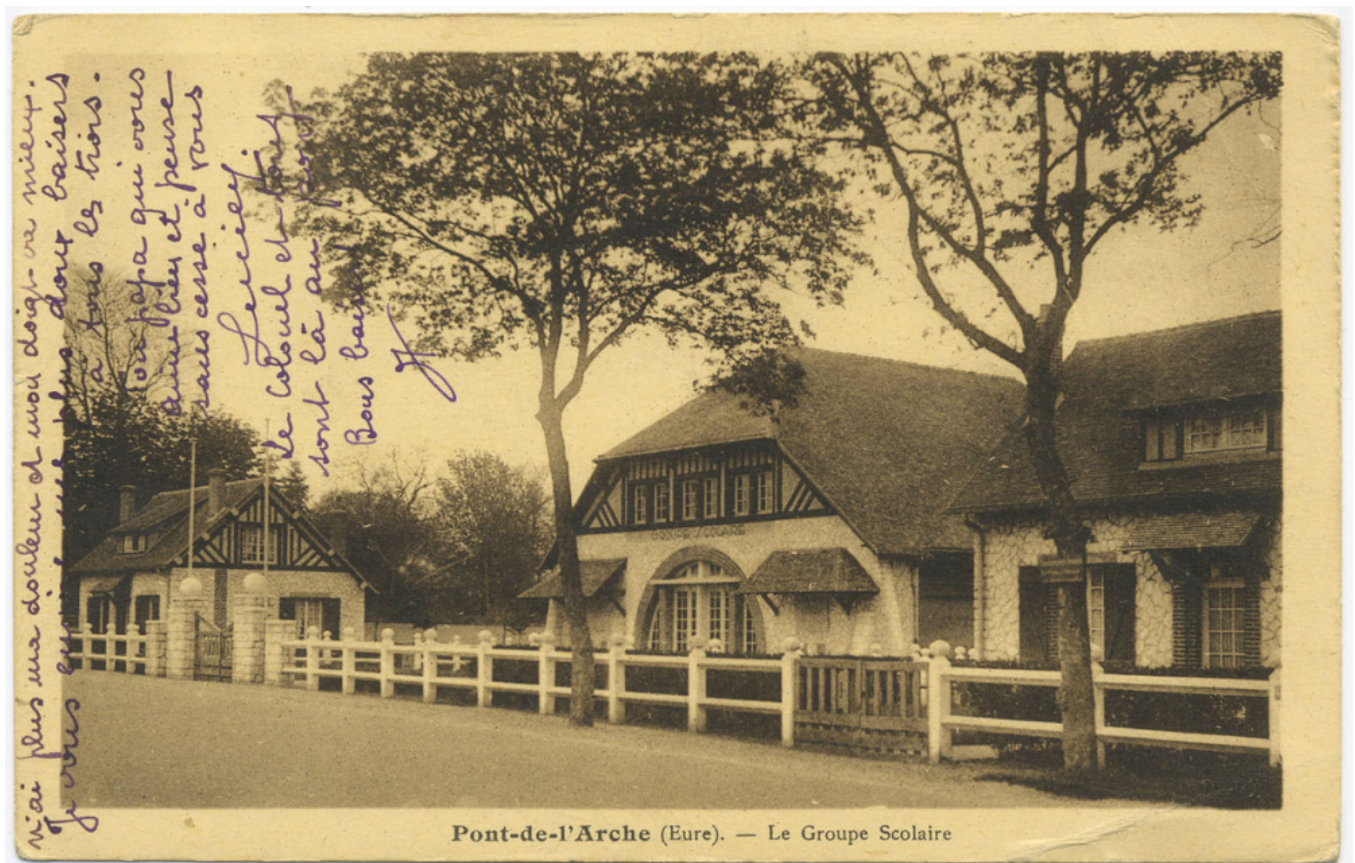 n'ai plus ma douleur et mon doigt va mieux.
Je vous envoie mes plus doux baisers
à tous les trois.
Ton papa qui vous
aime bien et pense
sans cesse à vous
Lucien
Le Colonel et
sont là au
Bons baisers
GROUPE SCOLAIRE
Pont-de-l'Arche (Eure). — Le Groupe Scolaire